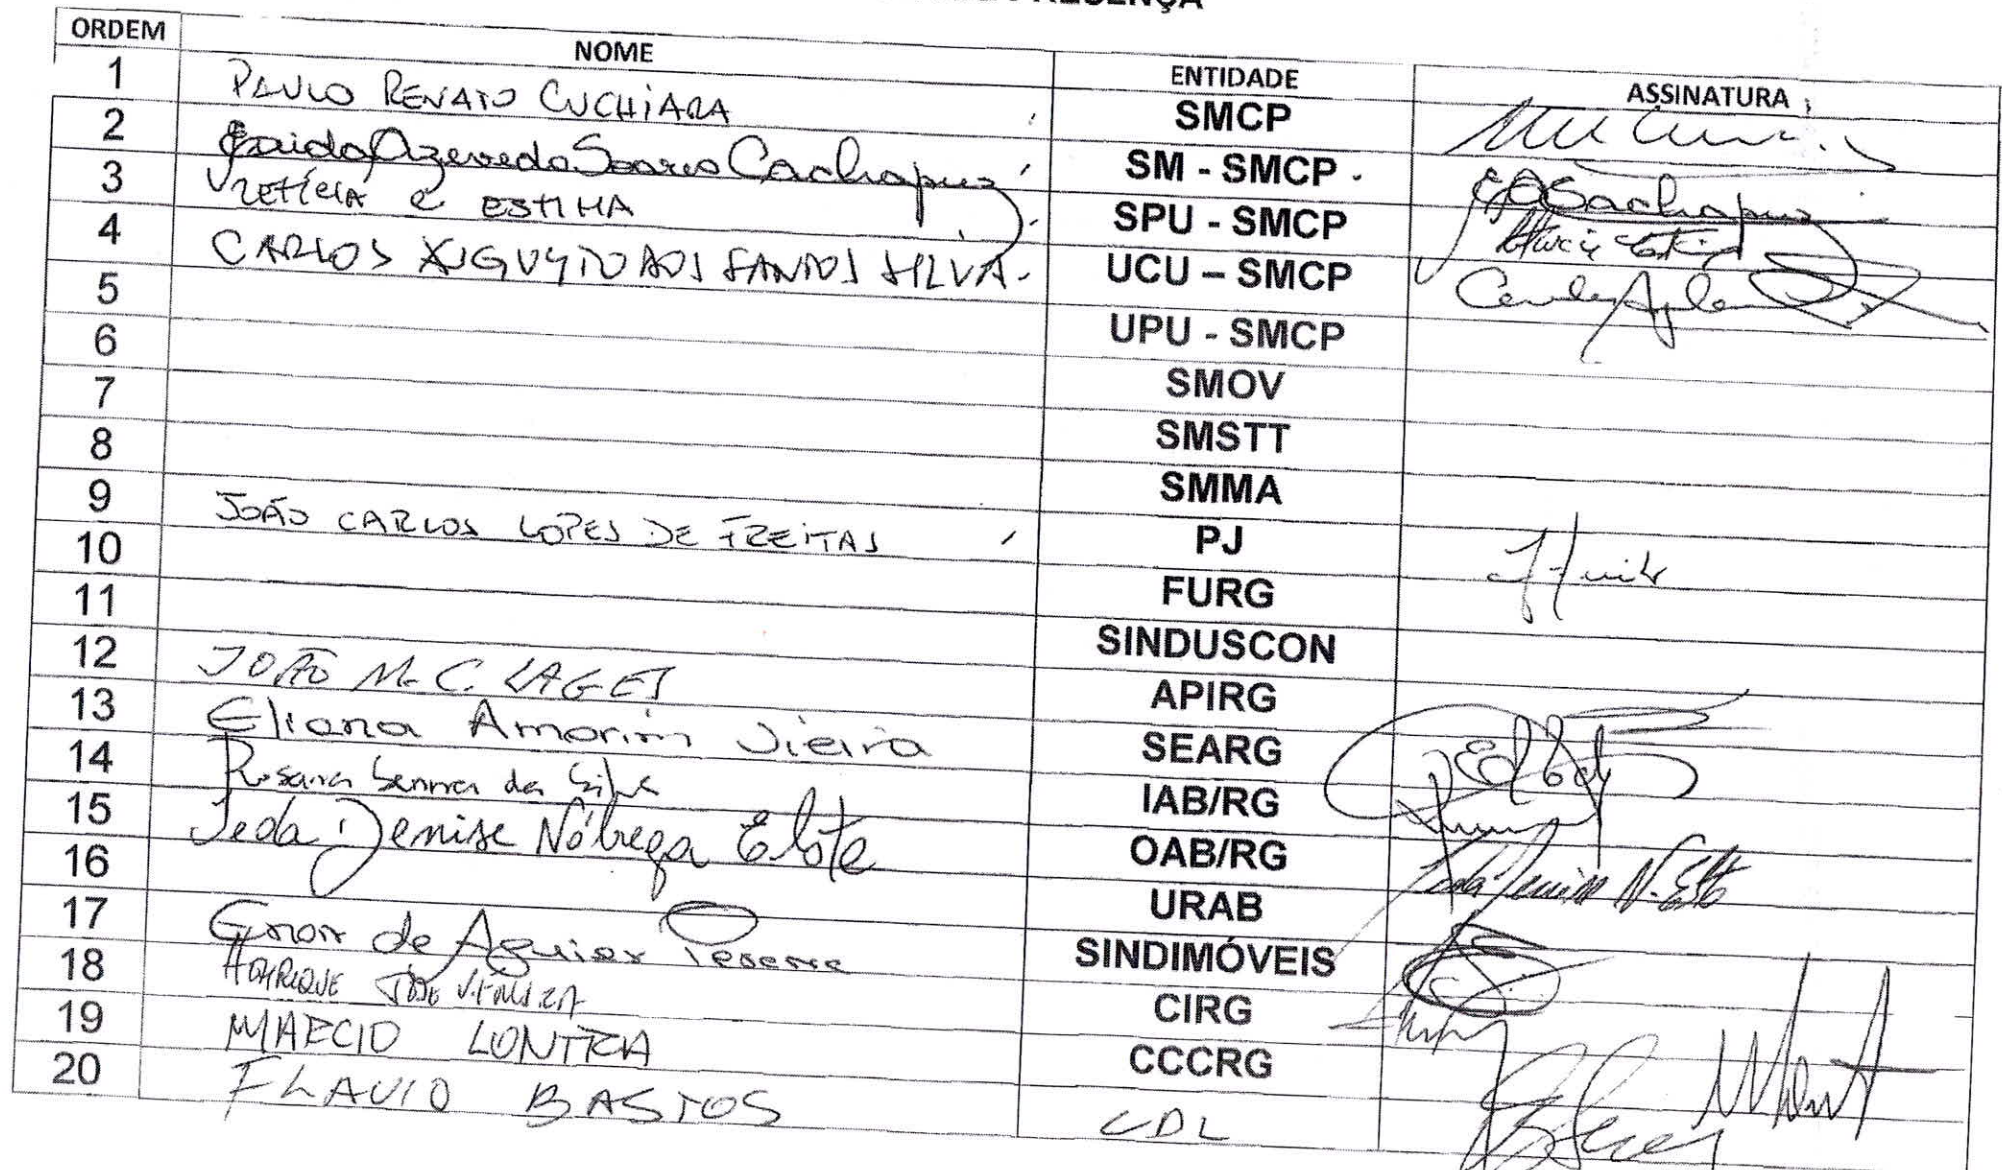 ORDEM NOME ENTIDADE ASSINATURA
1 PAULO RENATO CUCHIARA SMCP
2 Azevedo Soares Cachapuz SM - SMCP
3 LETÍCIA E ESTIMA SPU - SMCP
4 CARLOS AUGUSTO DOS SANTOS SILVA UCU – SMCP
5 UPU - SMCP
6 SMOV
7 SMSTT
8 SMMA
9 JOÃO CARLOS LOPES DE FREITAS PJ
10 FURG
11 SINDUSCON
12 JOÃO M. C. LAGES APIRG
13 Eliana Amorim Vieira SEARG
14 Rosana Senna da Silva IAB/RG
15 Ieda Denise Nóbrega Elste OAB/RG
16 URAB
17 de Aguiar SINDIMÓVEIS
18 HENRIQUE JOSÉ CIRG
19 MARCIO LONTRA CCCRG
20 FLAVIO BASTOS CDL